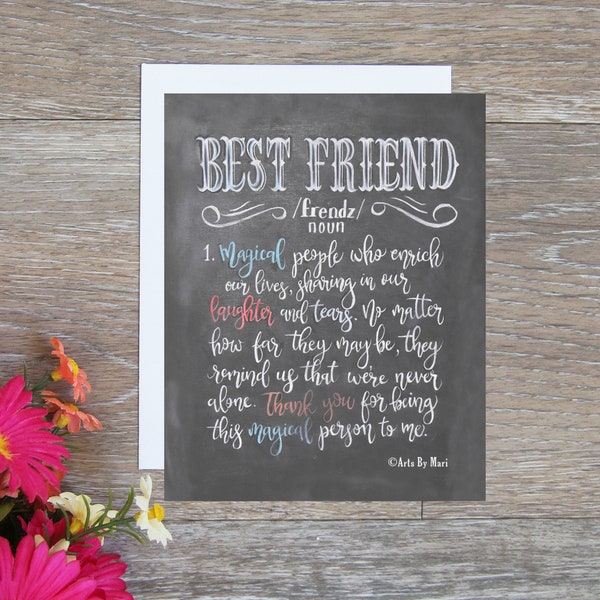 BEST FRIEND
/frendz/
noun
1. Magical people who enrich
our lives, sharing in our
laughter and tears. No matter
how far they may be, they
remind us that we're never
alone. Thank you for being
this magical person to me.
©Arts By Mari